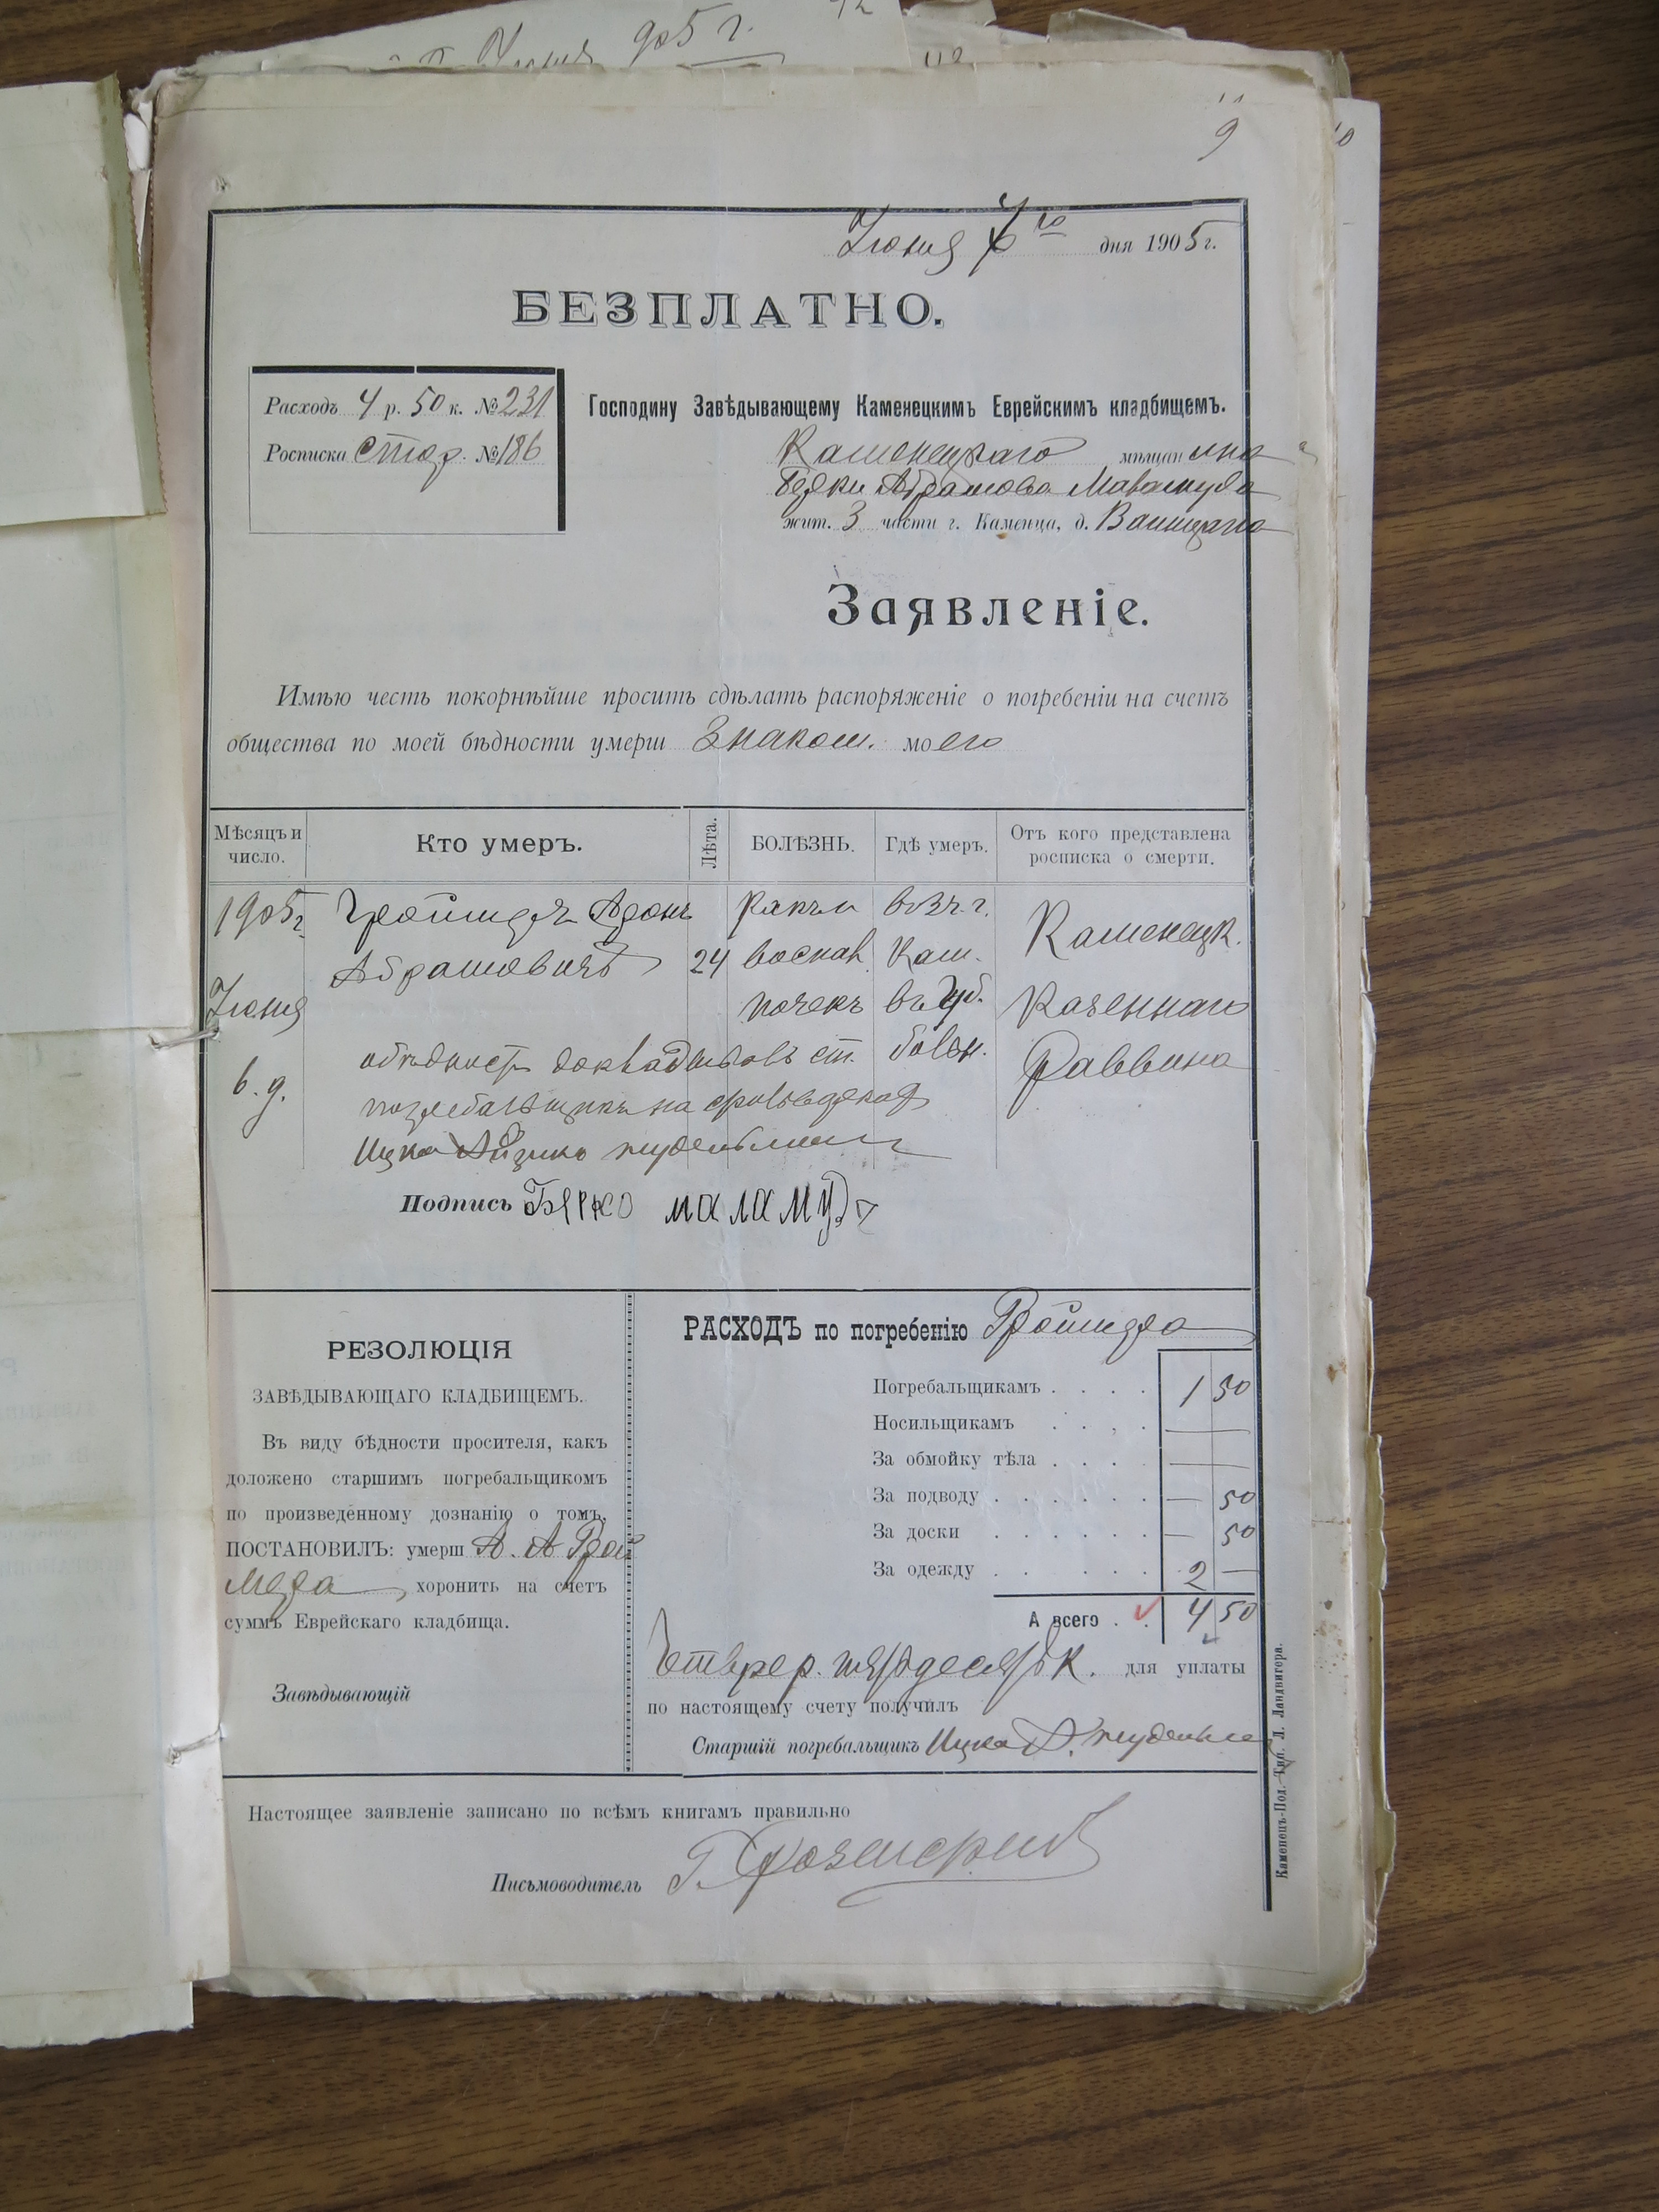 905 г.
9
10
Іюня дня 1905 г.
БЕЗПЛАТНО.
Расходъ 4 р. 50 к. № 231
Росписка стар. № 186
Господину Завѣдывающему Каменецкимъ Еврейскимъ кладбищемъ.
Каменецкаго мѣщанина
Берки Абрамова Маламуда
жит. 3 части г. Каменца, д.
Заявленіе.
Имѣю честь покорнѣйше просить сдѣлать распоряженіе о погребеніи на счетъ
общества по моей бѣдности умерш знаком. моего
Мѣсяцъ и число. Кто умеръ. Лѣта. БОЛѢЗНЬ. Гдѣ умеръ. Отъ кого представлена росписка о смерти.
1905 г. Аронъ
Абрамовичъ 24 воспал. Кам. Каменецк.
Іюня почекъ въ губ. Казеннаго
6 д. болн. Раввина
объ бѣдност. ст.
погребальщикъ на
Ицко
Подпись Бярко маламудъ
РЕЗОЛЮЦІЯ
ЗАВѢДЫВАЮЩАГО КЛАДБИЩЕМЪ.
Въ виду бѣдности просителя, какъ
доложено старшимъ погребальщикомъ
по произведенному дознанію о томъ,
ПОСТАНОВИЛЪ: умерш А. А. Грой
мера, хоронить на счетъ
суммъ Еврейскаго кладбища.
Завѣдывающій
РАСХОДЪ по погребенію
Погребальщикамъ . . . . 1 50
Носильщикамъ . . . . —
За обмойку тѣла . . . . —
За подводу . . . . . . — 50
За доски . . . . . . — 50
За одежду . . . . . . 2 —
А всего . . 4 50
Четыре р. пятьдесятъ к. для уплаты
по настоящему счету получилъ
Старшій погребальщикъ Ицко А.
Настоящее заявленіе записано по всѣмъ книгамъ правильно
Письмоводитель
Каменецъ-Под. Тип. Л. Ландвигера.